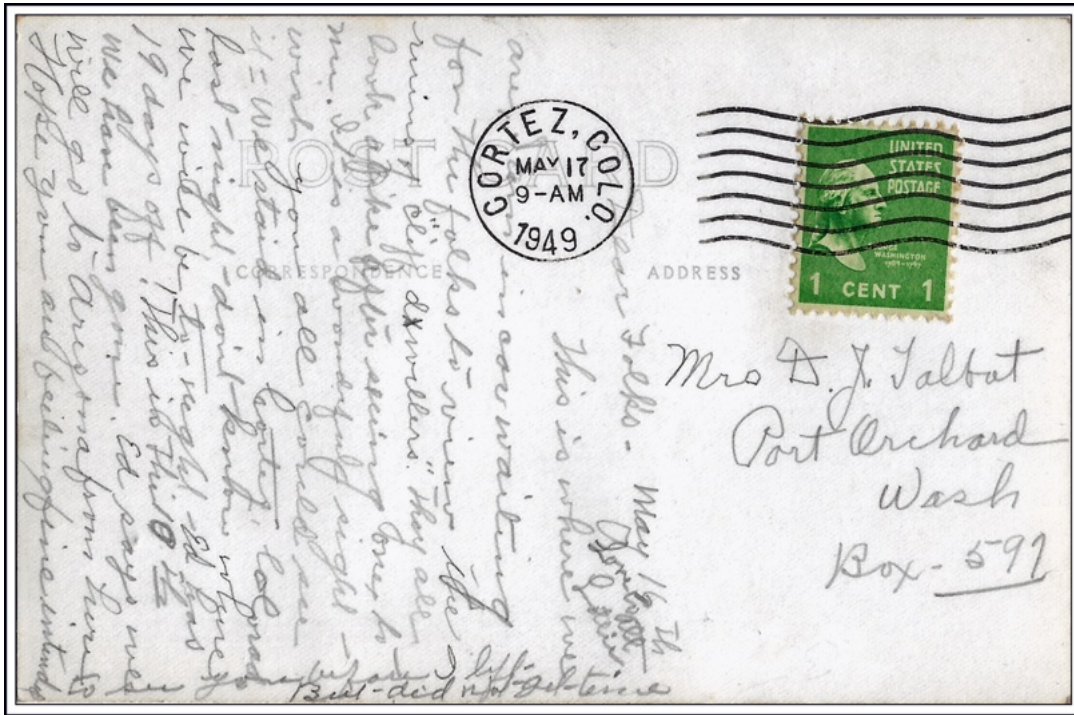 POST CARD
CORTEZ, COLO.
MAY 17
9-AM
1949
UNITED
STATES
POSTAGE
WASHINGTON
1 CENT 1
CORRESPONDENCE
ADDRESS
Mrs D. J. Talbot
Port Orchard
Wash
Box - 597
May 16 th
Dear Folks -
This is where we
are in car waiting
for the folks to view the
ruins, "cliff dxwellers." They all
look alike after seeing one to
me. It is a wonderful sight -
wish you all could see
it = We staid in Cortez Colorado
last-night don't know where
we will be to-night Ed has
19 days off. This is the 10 th
we have been gone. Ed says we
will go to Arizona from here
Hope you are feeling fine
to see you before I left-
But-did not-get-time